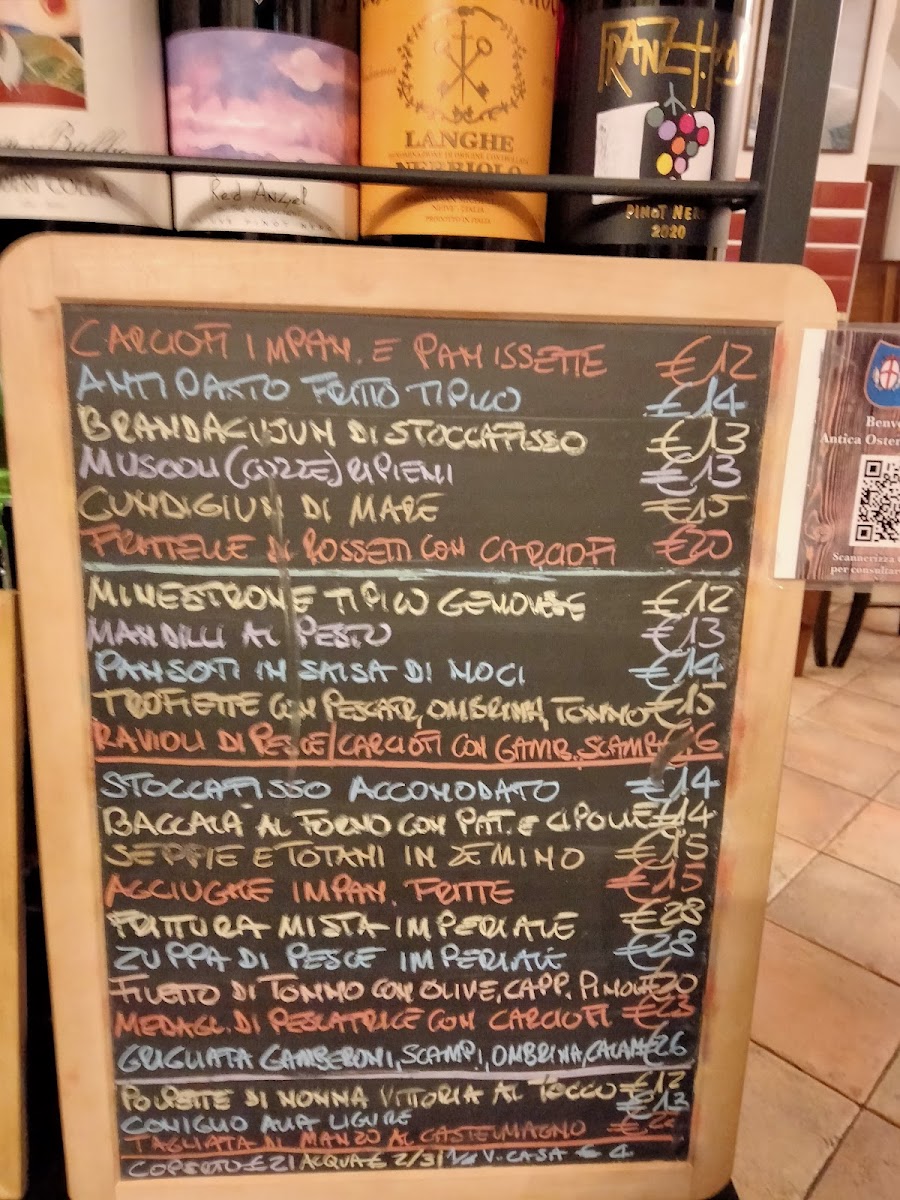 Red Angel
PINOT NERO
LANGHE
NEBBIOLO
FRANZ HAAS
PINOT NERO
2020
CARCIOFI IMPAN. E PANISSETTE €12
ANTIPASTO FRITTO TIPICO €14
BRANDACUJUN DI STOCCAFISSO €13
MUSCOLI (COZZE) RIPIENI €13
CUNDIGIUN DI MARE €15
FRITTELLE DI ROSSETTI CON CARCIOFI €20
MINESTRONE TIPICO GENOVESE €12
MANDILLI AL PESTO €13
PANSOTI IN SALSA DI NOCI €14
TROFIETTE CON PESCATR, OMBRINA, TONNO €15
RAVIOLI DI PESCE/CARCIOFI CON GAMB. SCAMPI
STOCCAFISSO ACCOMODATO €14
BACCALÀ AL FORNO CON PAT. E CIPOLLE €14
SEPPIE E TOTANI IN ZEMINO €15
ACCIUGHE IMPAN. FRITTE €15
FRITTURA MISTA IMPERIALE €28
ZUPPA DI PESCE IMPERIALE €28
FILETTO DI TONNO CON OLIVE, CAPP. PINOLI €20
MEDAGL. DI PESCATRICE CON CARCIOFI €23
GRIGLIATA GAMBERONI, SCAMPI, OMBRINA, CALAM €26
POLPETTE DI NONNA VITTORIA AL TOCCO €12
CONIGLIO ALLA LIGURE €13
TAGLIATA DI MANZO AL CASTELMAGNO
COPERTO €2 | ACQUA € 2/3 | ½ V. CASA € 4
Benve
Antica Oster
Scannerizza
per consultar